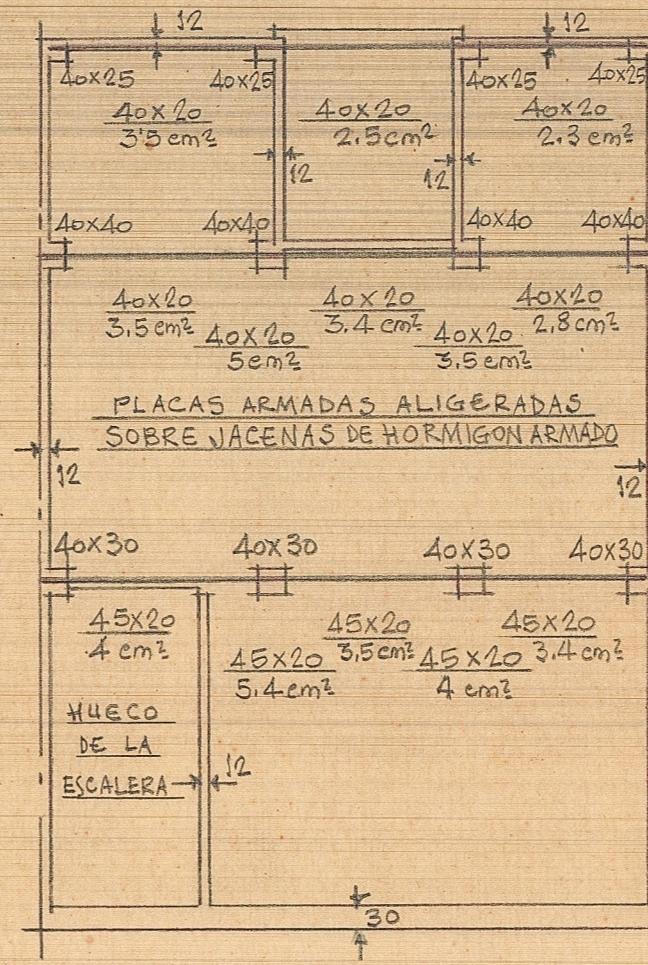 12 12
40x25 40x25 40x25 40x25
40x20 40x20 40x20
3'5 cm² 2.5cm² 2.3 cm²
12 12
40x40 40x40 40x40 40x40
40x20 40x20 40x20
3,5 cm² 3.4 cm² 2,8cm²
40x20 40x20
5cm² 3.5cm²
PLACAS ARMADAS ALIGERADAS
SOBRE JACENAS DE HORMIGON ARMADO
12 12
40x30 40x30 40x30 40x30
45x20 45x20 45x20
4 cm² 3,5cm² 3.4 cm²
45x20 45x20
5.4 cm² 4 cm²
HUECO
DE LA
ESCALERA
12
30